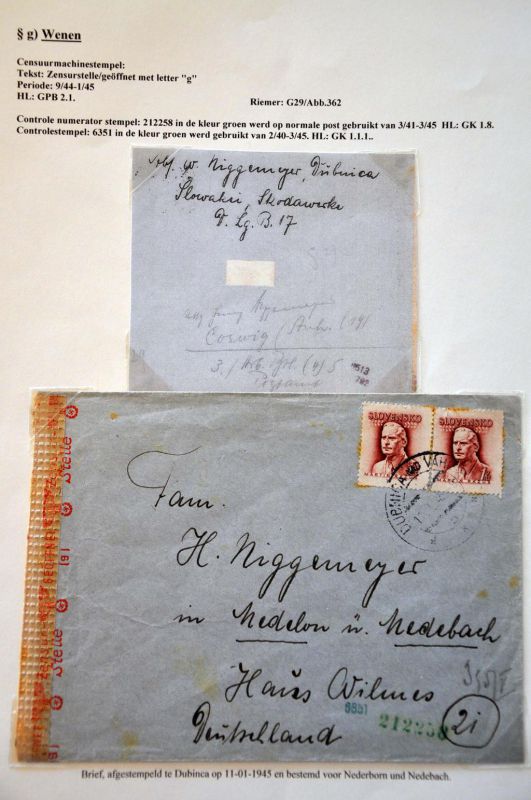 § g) Wenen
Censuurmachinestempel:
Tekst: Zensurstelle/geöffnet met letter "g"
Periode: 9/44-1/45
HL: GPB 2.1.
Riemer: G29/Abb.362
Controle numerator stempel: 212258 in de kleur groen werd op normale post gebruikt van 3/41-3/45 HL: GK 1.8.
Controlestempel: 6351 in de kleur groen werd gebruikt van 2/40-3/45. HL: GK 1.1.1..
Abs. W. Niggemeyer, Dubnica
Slowakei, Skodawerke
D. Lg. B. 17
Coswig (Anh. (19)
SLOVENSKO
SLOVENSKO
DUBNICA NAD VÁH
Fam.
H. Niggemeyer
in Medelon ü. Medebach
Haus Wilmes
Deutschland
212258
21
Brief, afgestempeld te Dubinca op 11-01-1945 en bestemd voor Nederborn und Nedebach.